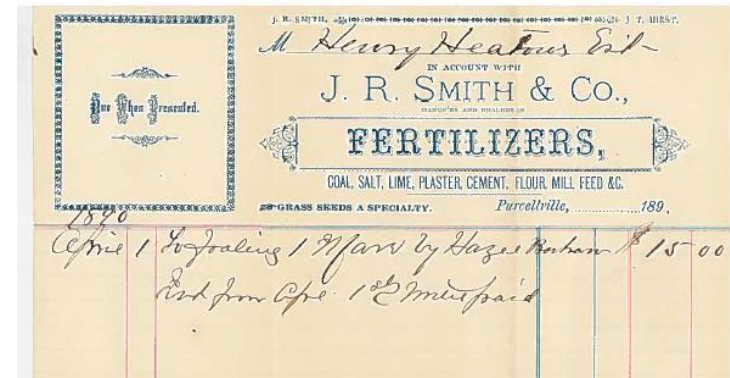 J. R. SMITH, J T. HIRST.
M Henry Heatons Est
IN ACCOUNT WITH
J. R. SMITH & CO.,
MANUF'RS AND DEALERS IN
FERTILIZERS,
COAL, SALT, LIME, PLASTER, CEMENT, FLOUR, MILL FEED &C.
Due When Presented.
GRASS SEEDS A SPECIALTY. Purcellville, ..............189 .
1890
April 1 To foaling 1 Mare by $ 15 00
Int from Apl. 1st until paid